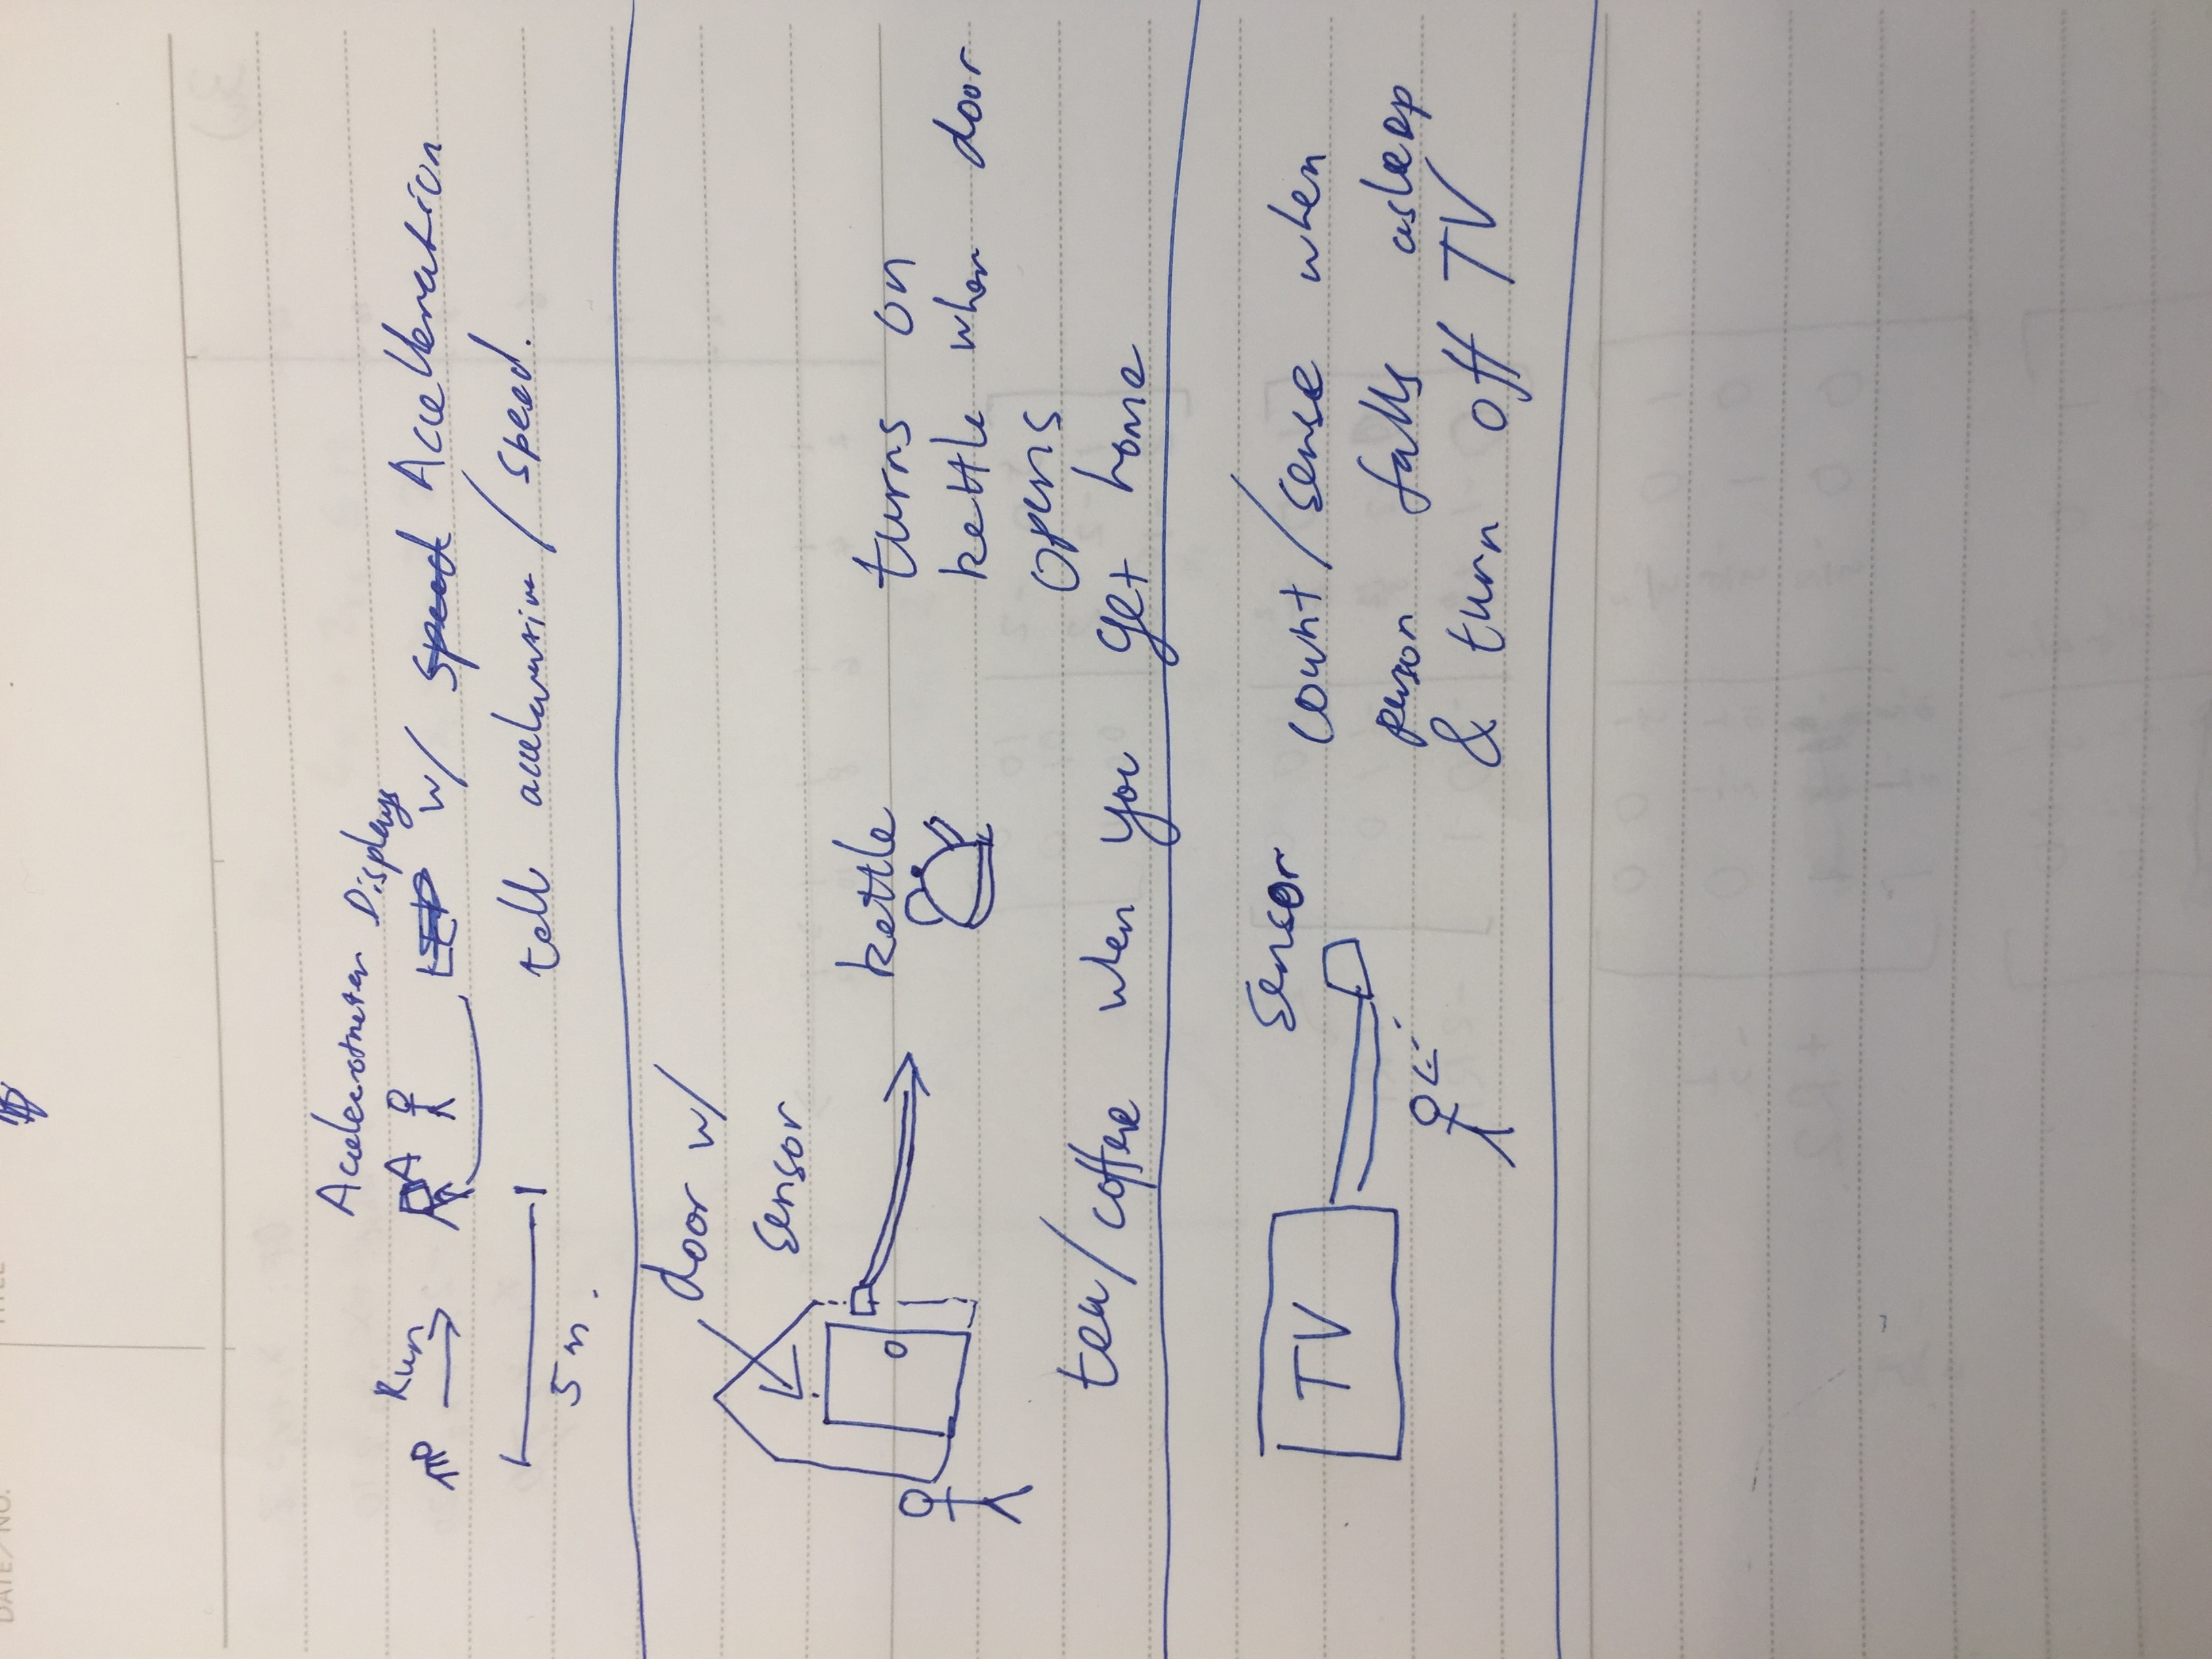 DATE/NO.
TITLE
Accelerometer Displays
Run
A
LED w/ speed Accelleration
5m.
tell acceleration/speed.
door w/
sensor
kettle
turns on
kettle when door
opens
tea/coffee when you get home
TV
sensor
count/sense when
person falls asleep
& turn off TV